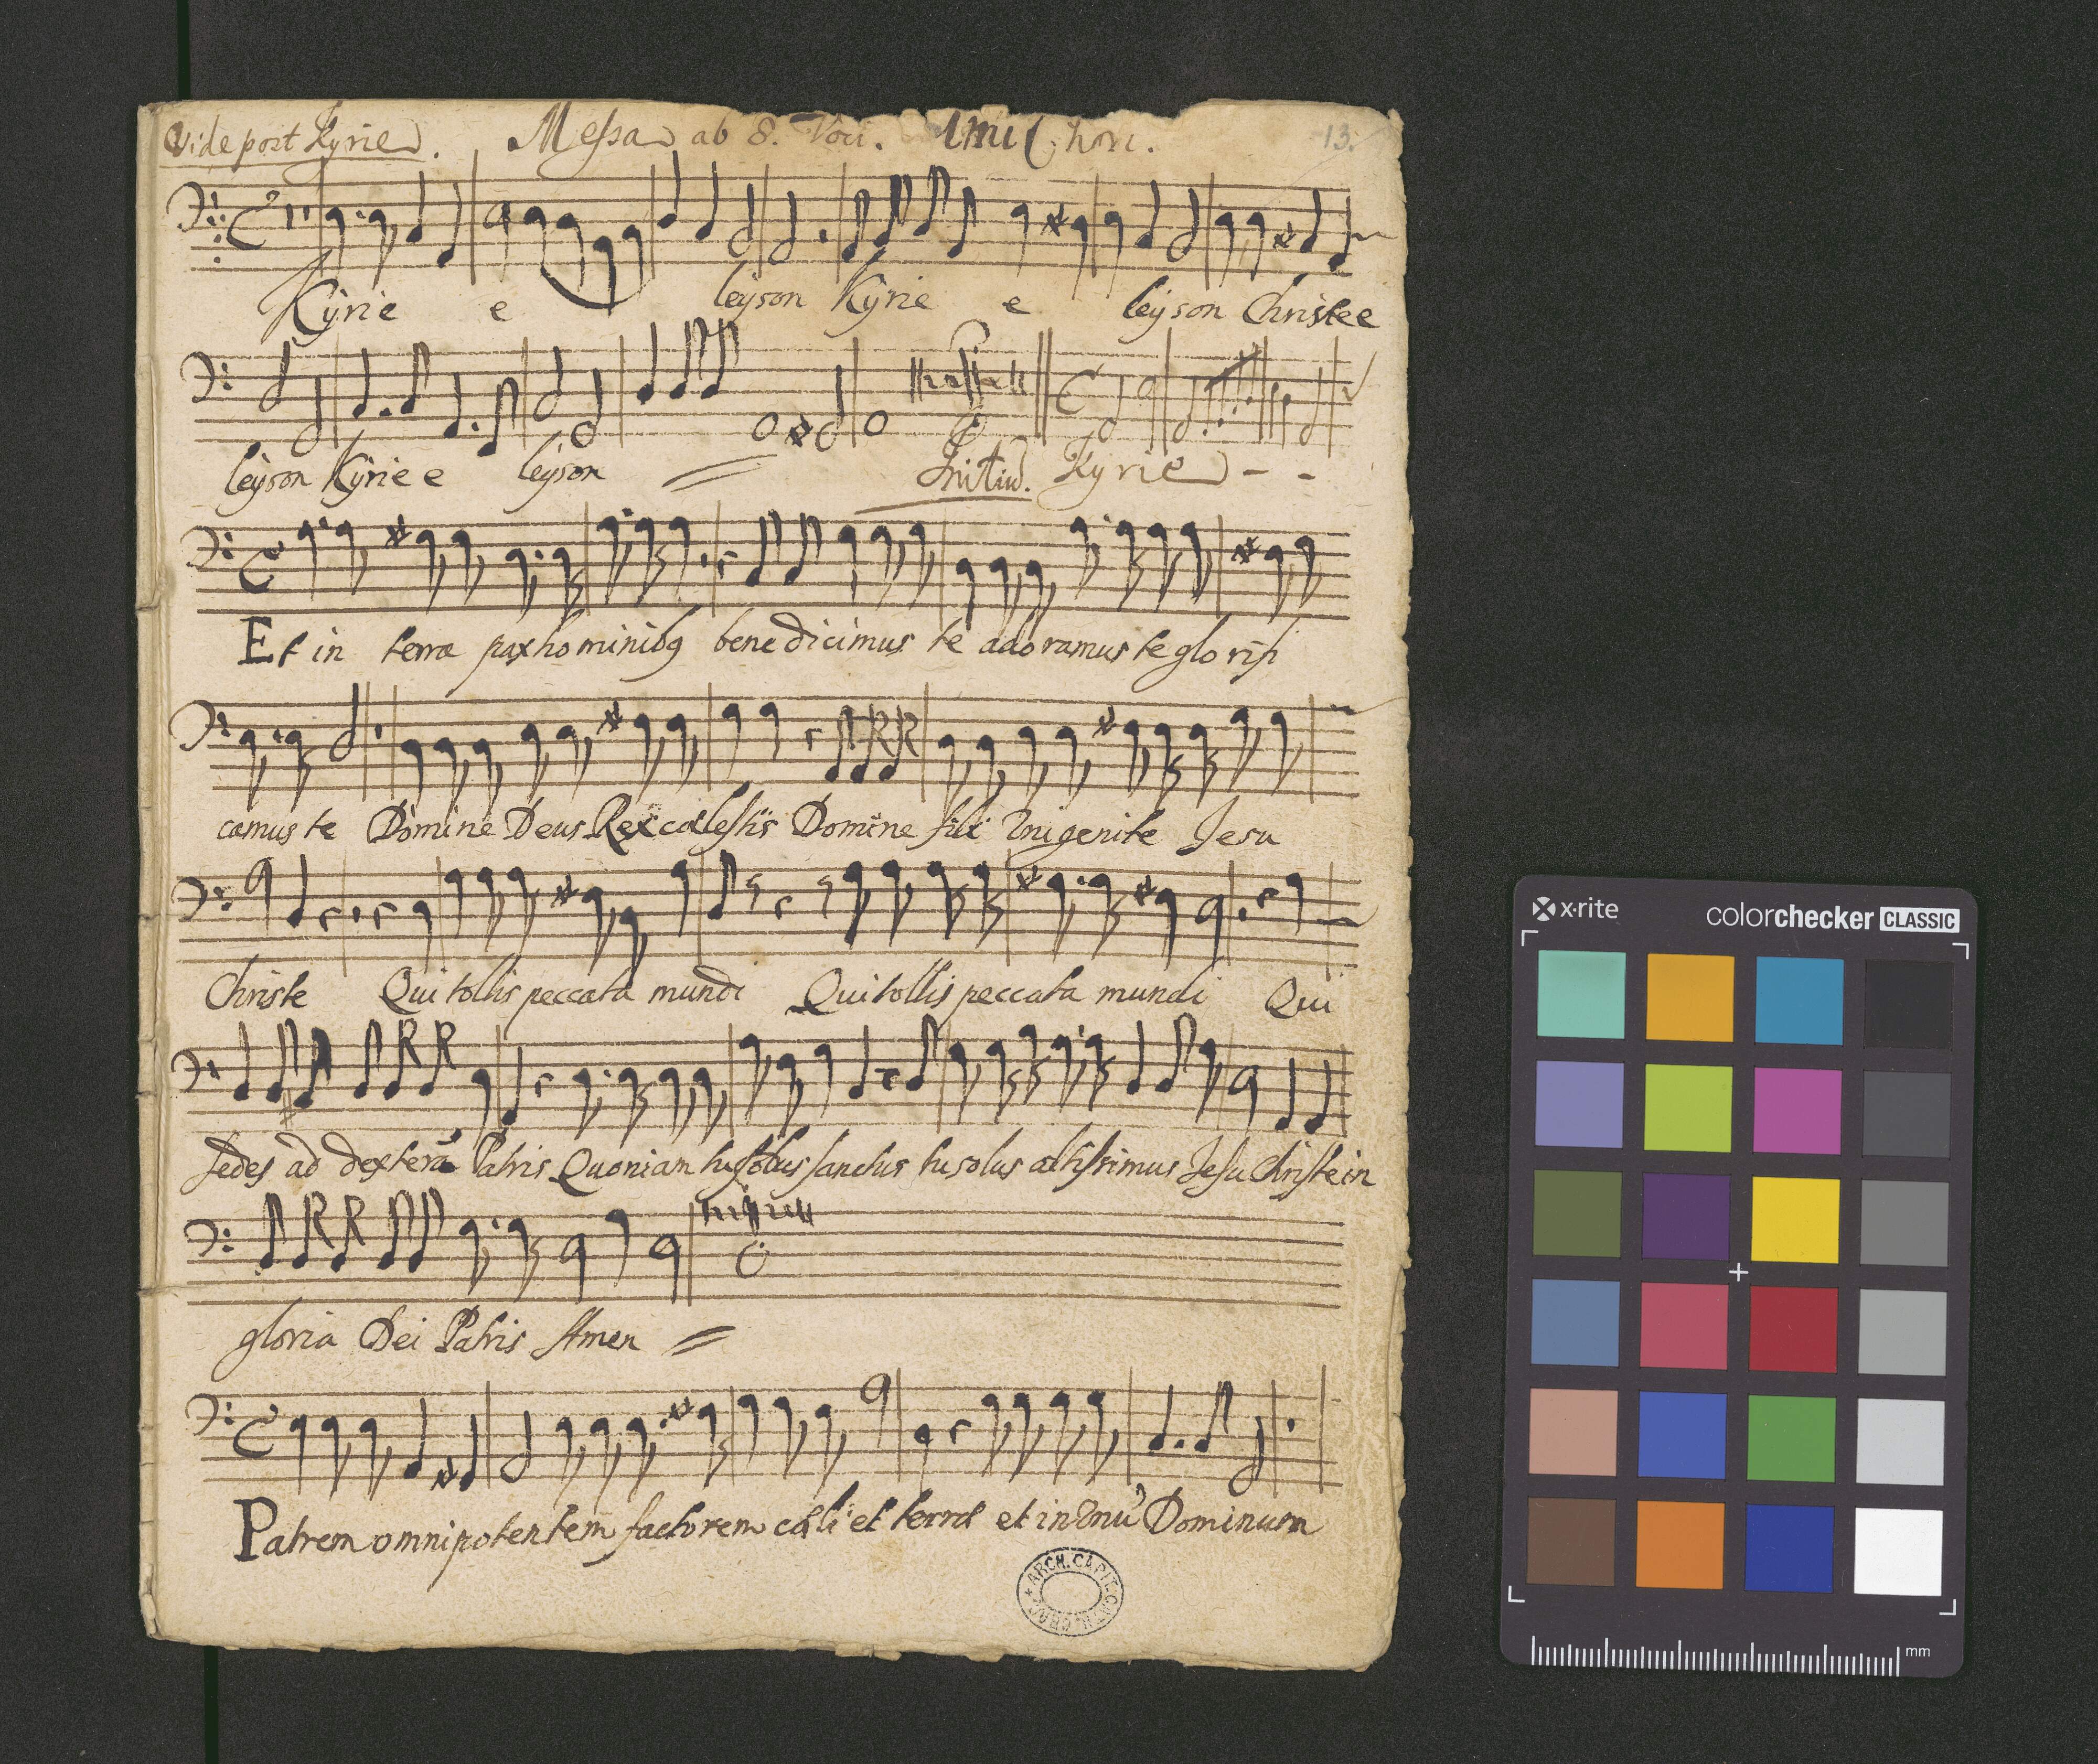 Vide post Kyrie. Messa ab 8. Voci. 1mi Chori. 13.
Kyrie e leyson Kyrie e leyson Christe e
leyson Kyrie e leyson Initiu. Kyrie - -
Et in terra pax hominibq benedicimus te adoramus te glorifi
camus te Domine Deus Rex cælestis Domine fili Vnigenite Jesu
Christe Qui tollis peccata mundi Qui tollis peccata mundi Qui
sedes ad dexterã Patris Quoniam tu solus sanctus tu solus altissimus Jesu Christe in
gloria Dei Patris Amen
Patrem omnipotentem factorem cæli et terræ et in Vnũ Dominum
ARCH. CAPIT.
x-rite
colorchecker CLASSIC
mm